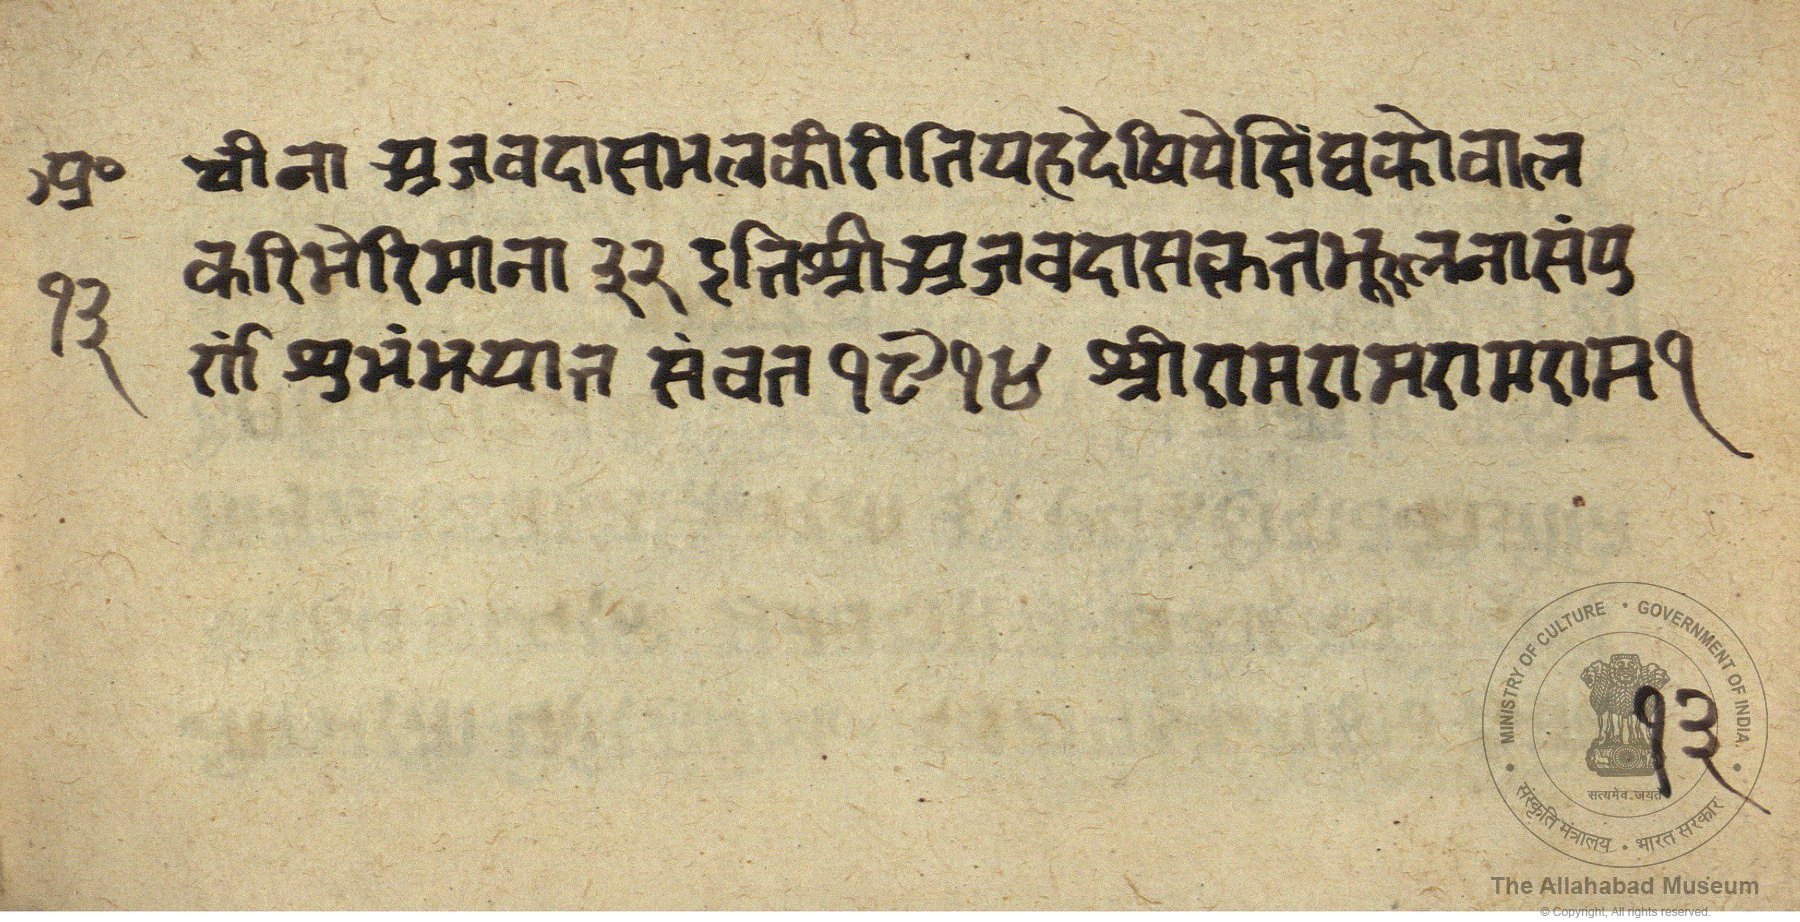 अ०
चीना अजवदासमलकीरीतियहदेषियेसिंघकोवाल
१३
करिभेरिमाना ३२ इतिश्रीअजवदासकृतभूलनासंपु
र्ण शुभंमयात संवत १९१४ श्रीरामरामरामराम१
१३
MINISTRY OF CULTURE • GOVERNMENT OF INDIA
सत्यमेव जयते
संस्कृति मंत्रालय • भारत सरकार
The Allahabad Museum
© Copyright, All rights reserved.